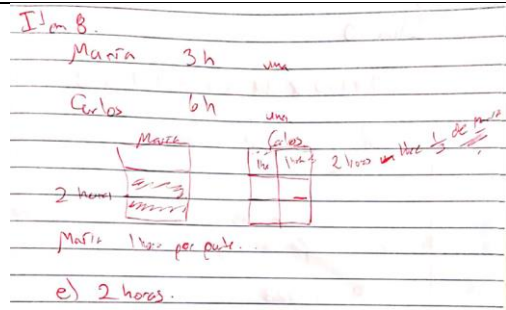 Item 8.
María 3h una
Carlos 6h una
María Carlos
1h 1h 2 horas hace 1/3 de María
2 horas
María 1 hora por parte.
e) 2 horas.